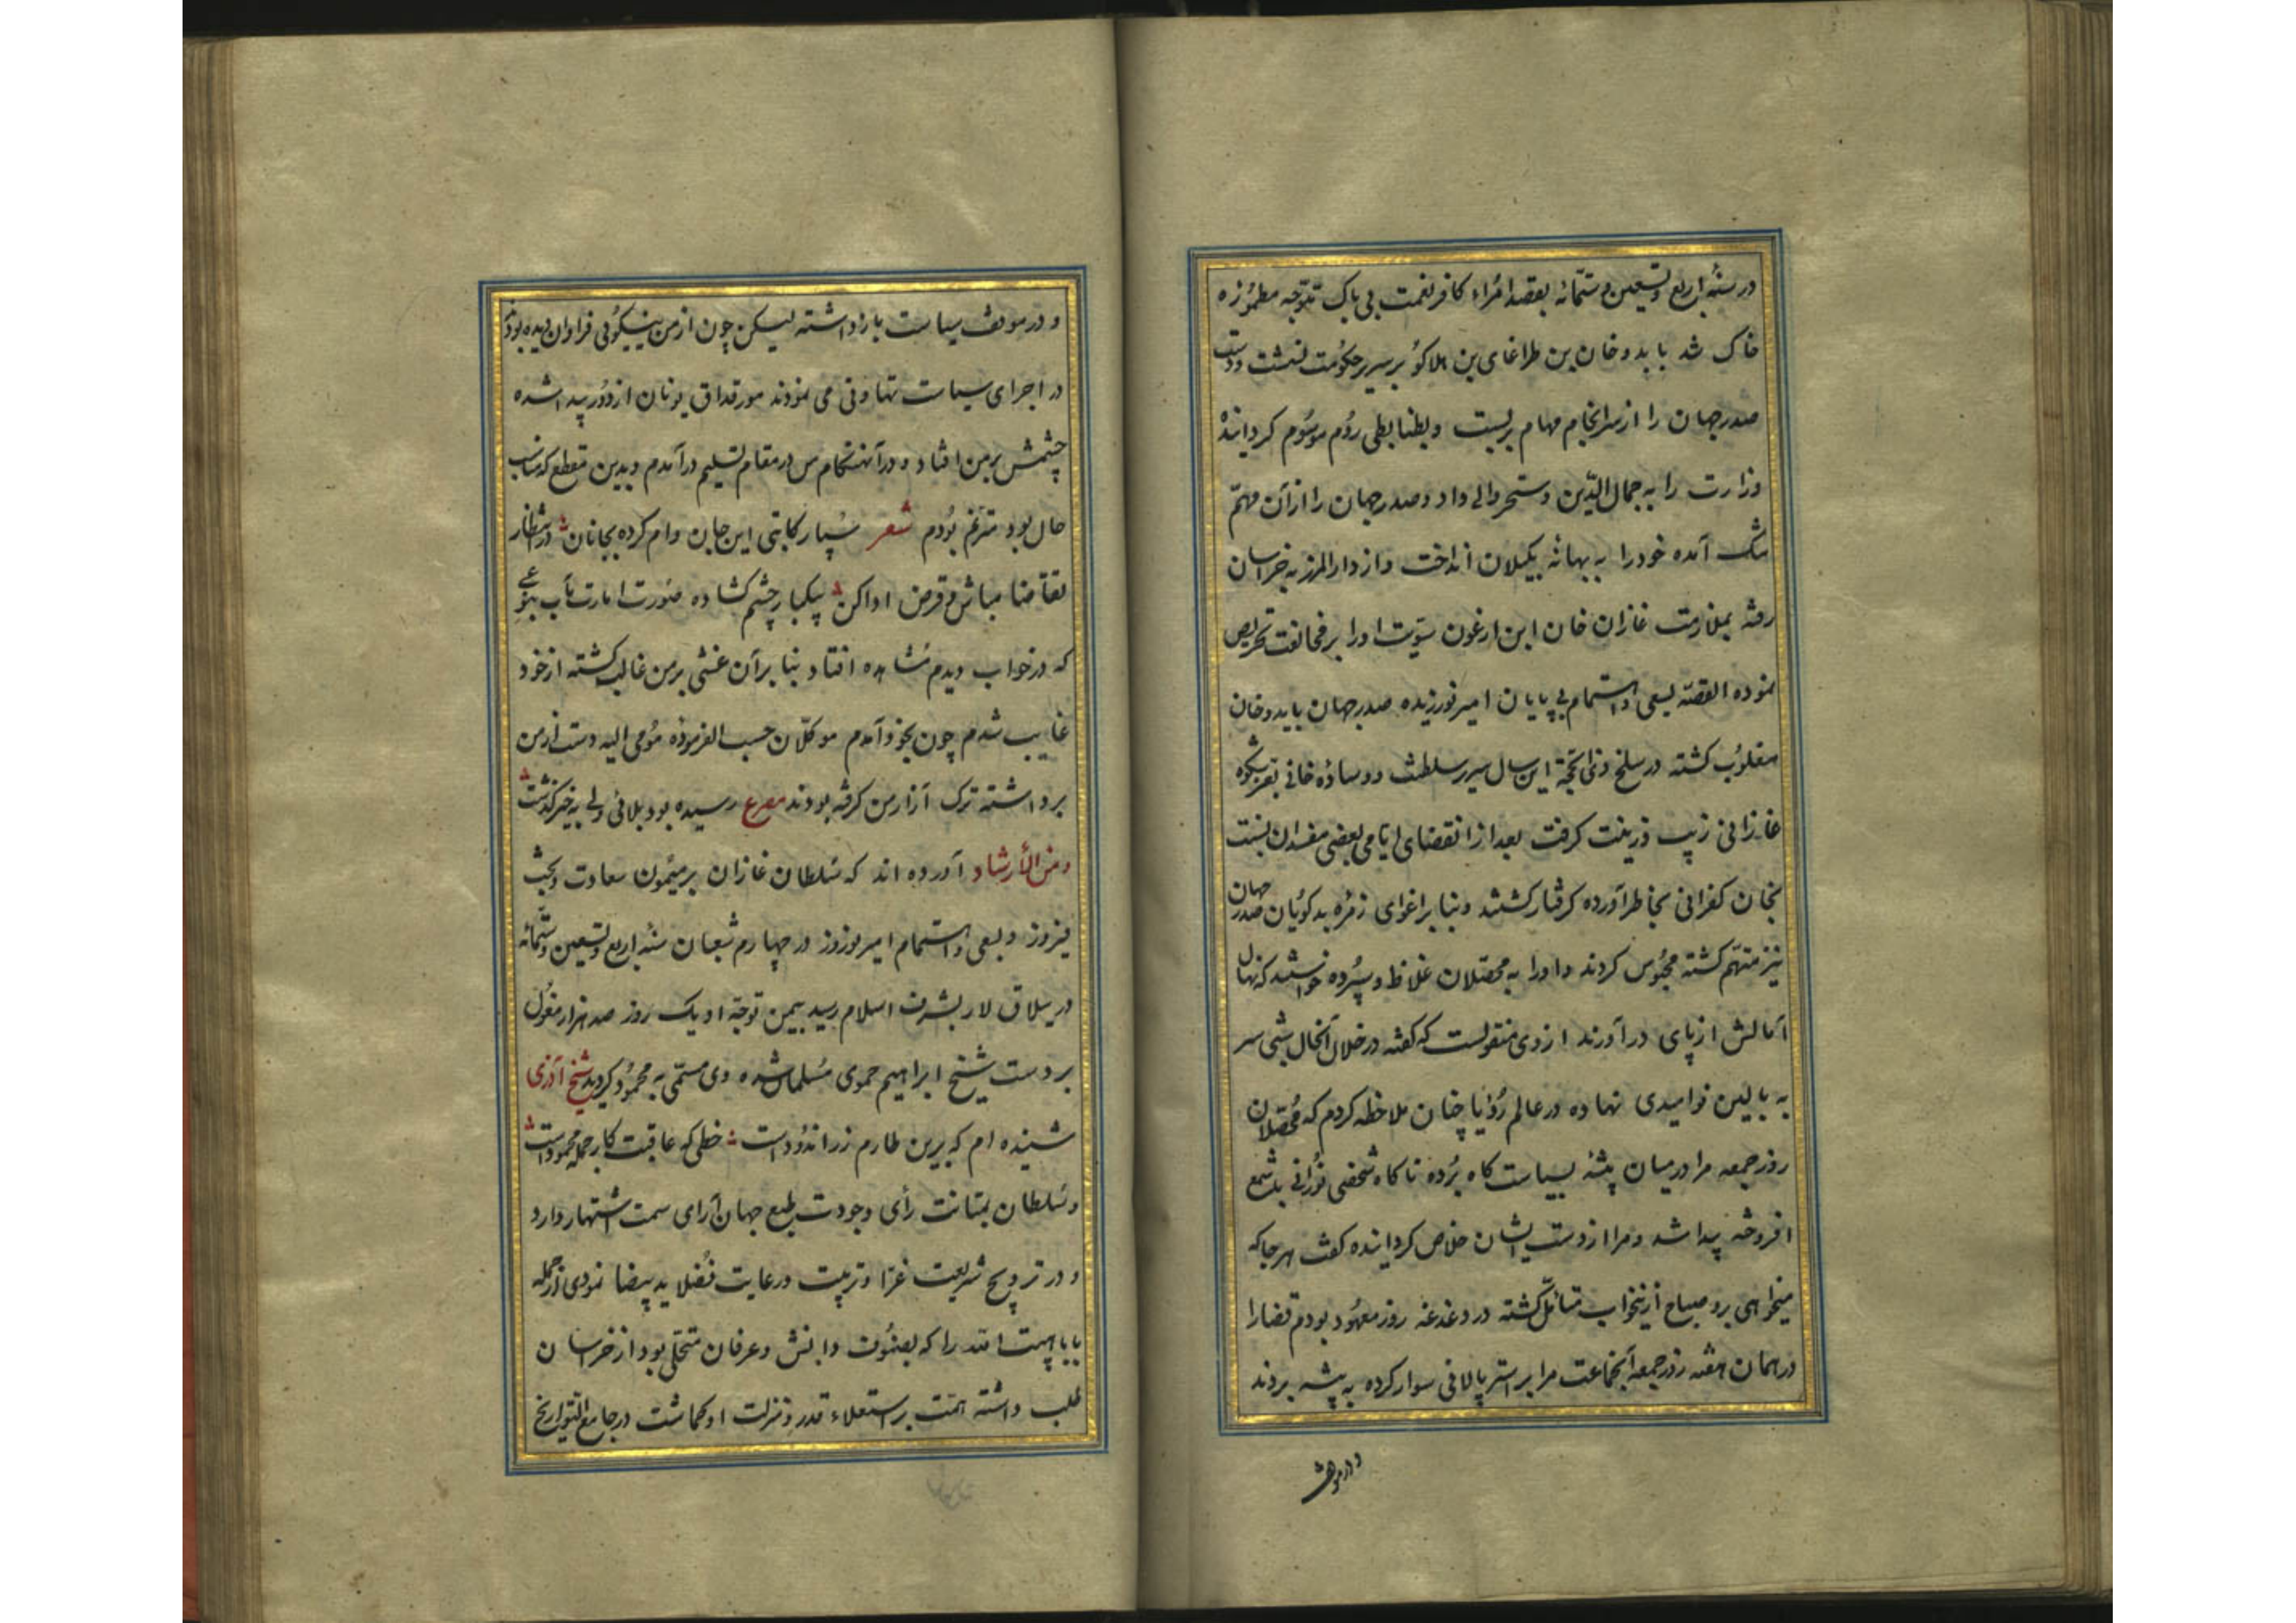 در سنه اربع و تسعین و ستمائه بقصد امراء کافر نعمت بی باک متوجه مطموره
خاک شد بایدوخان بن طراغای بن هلاکو بر سریر حکومت نشست ودست
صدر جهان را از سرانجام مهام بربست وبضابطی روم موسوم کردانیده
وزارت را به جمال الدین دستجردانی داد وصدر جهان را از آن مهم
ننک آمده خود را به بهانه بکیلان انداخت واز دار المرز به خراسان
رفته بملازمت غازان خان ابن ارغون او را بر مخالفت تحریص
نموده القصه بسعی واهتمام بی پایان امیر نوروز صدر جهان بایدوخان
مغلوب کشته در سلخ ذی الحجه این سال سریر سلطنت ووساده خانی بفر شکوه
غازانی زیب وزینت کرفت بعد از انقضای ایامی بعضی مفسدان نسبت
بخان کفرانی بخاطر آورده کرفتار کشتند وبنابر اغوای زمره بدکویان صدر جهان
نیز متهم کشته محبوس کردند واو را به محصلان غلاظ سپرده خواستند که نهال
آمالش از پای در آورند از وی منقولست که کفته در خلال آنحال شبی سر
به بالین نوامیدی نهاده در عالم رؤیا چنان ملاحظه کردم که محصلان
روز جمعه مرا در میان بیشه بسیاستکاه برده ناکاه شخصی نورانی با شمع
افروخته پیدا شد ومرا از دست ایشان خلاص کردانیده کفت هر جا که
میخواهی برو صباح از اینخواب متأمل کشته در دغدغه روز معهود بودم قضا را
در همان هفته روز جمعه آنجماعت مرا بر استر پالانی سوار کرده به بیشه بردند
و در موقف
و در موقف سیاست بازداشته لیکن چون از من نیکوئی فراوان دیده بودند
در اجرای سیاست تهاونی می نمودند مورقداق یونان از دور پیدا شده
چشمش بر من افتاد ودر آن هنکام من در مقام تسلیم در آمدم وبدین مقطع که مناسب
حال بود مترنم بودم شعر سپار کاتبی این جان وام کرده بجانان در انتظار
تقاضا مباش وقرض ادا کن یکبار چشم کشاده صورت امارت مآب بنوعی
که در خواب دیدم مشاهده افتاد بنابر آن غشی بر من غالب کشته از خود
غایب شدم چون بخود آمدم موکلان حسب الفرموده مومی الیه دست از من
برداشته ترک آزار من کرفته بودند مصرع رسیده بود بلائی ولی به خیر کذشت
ومن الأرشاد آورده اند که سلطان غازان بر میمون سعادت وبخت
فیروز وبسعی واهتمام امیر نوروز در چهارم شعبان سنه اربع وتسعین وستمائه
در ییلاق لار بشرف اسلام رسید بیمن توجه او یک روز صد هزار مغول
بر دست شیخ ابراهیم حموی مسلمان شده وی مسمی به محمود کردید شیخ آذری
شنیده ام که برین طارم زر اندود است خطی که عاقبت کار جمله محمود است
وسلطان بمتانت رأی وجودت طبع جهان آرای سمت اشتهار دارد
و در ترویج شریعت غرا وتربیت ورعایت فضلا ید بیضا نمودی از جمله
بابا هبت الله را که بصنوف دانش وعرفان متحلی بود از خراسان
طلب داشته همت بر استعلاء قدر ومنزلت او کماشت در جامع التواریخ